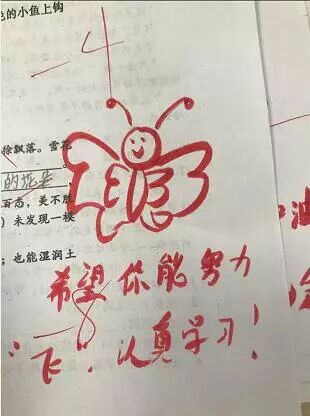 的小鱼上钩
-4
徐飘落。雪花
的花朵
。
百态，美不胜
）未发现一模
；也能湿润土
希望你能努力
“飞”，认真学习！
油